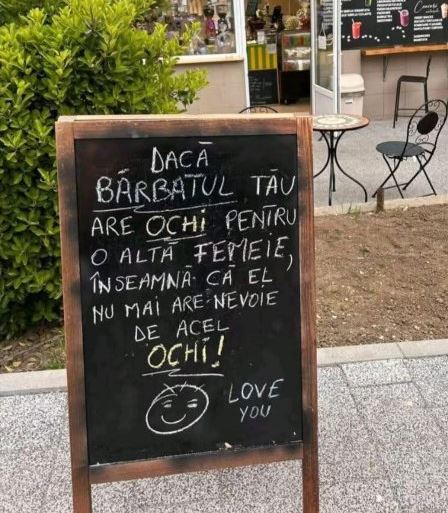 DACĂ
BĂRBATUL TĂU
ARE OCHI PENTRU
O ALTĂ FEMEIE,
ÎNSEAMNĂ CĂ EL
NU MAI ARE NEVOIE
DE ACEL
OCHI!
LOVE
YOU